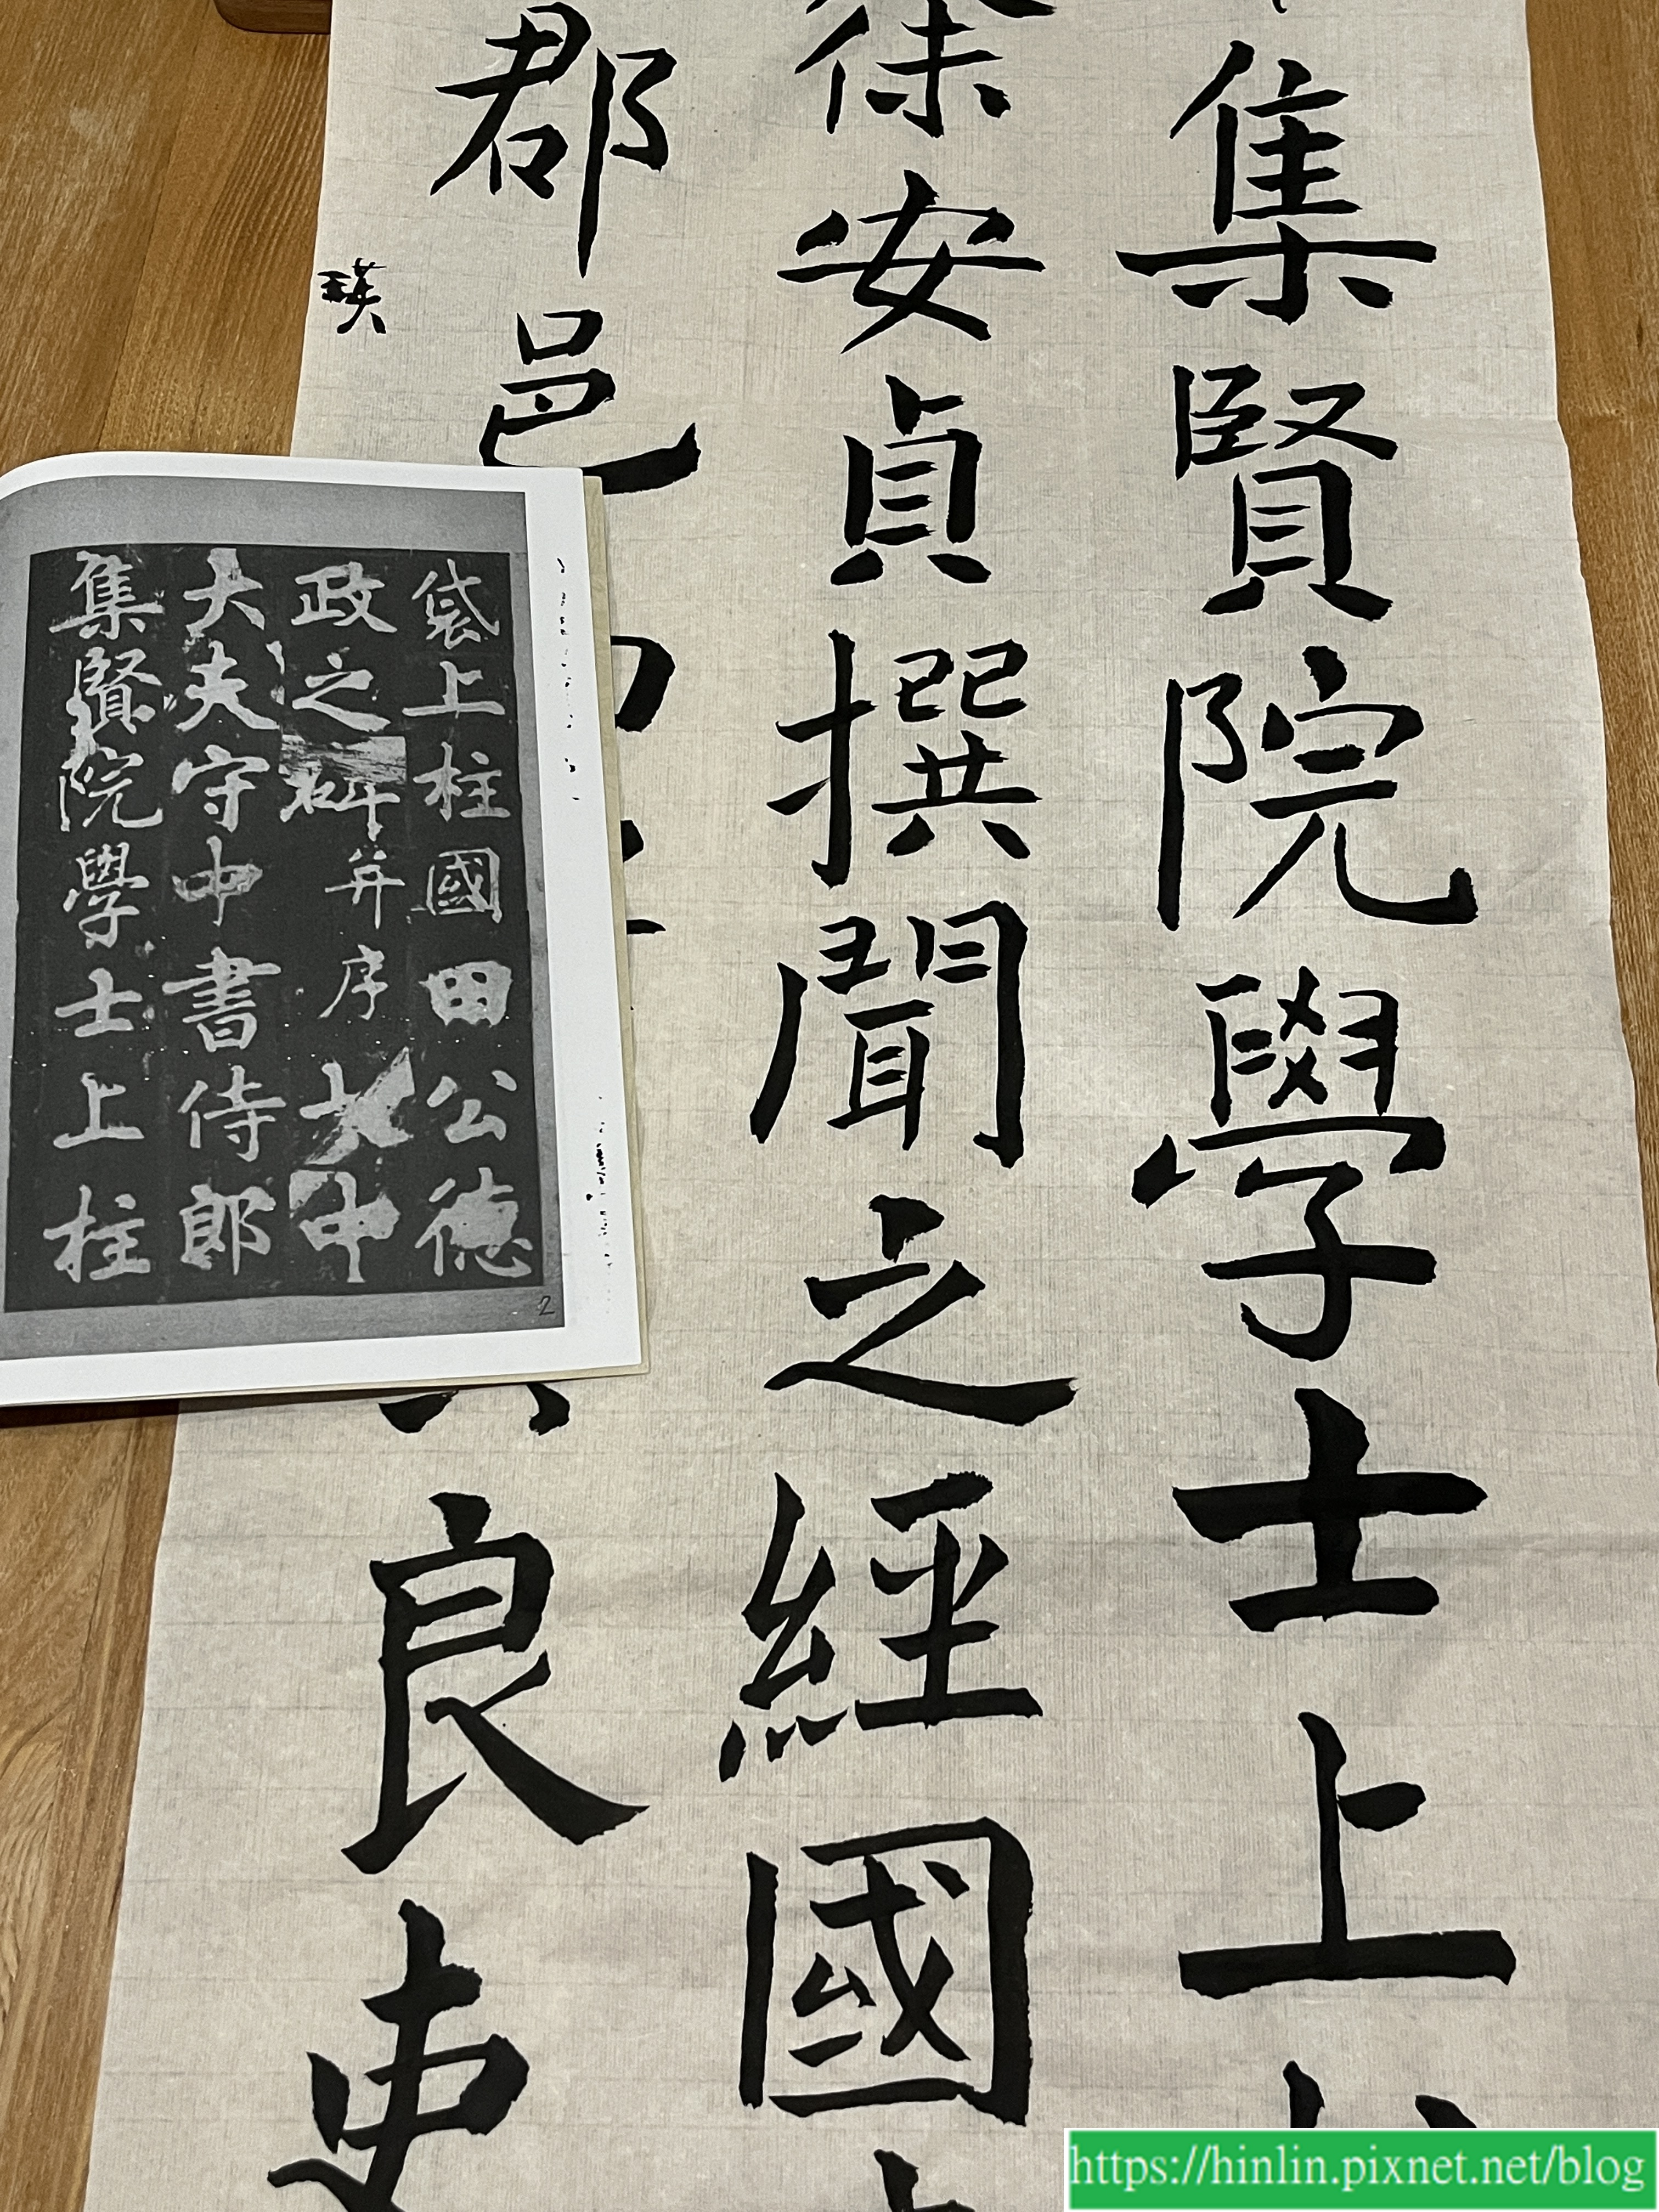 集賢院學士上
徐安貞撰聞之經國
郡邑
良史
瑛
袋上柱國田公德
政之碑并序大中
大夫守中書侍郎
集賢院學士上柱
2
https://hinlin.pixnet.net/blog